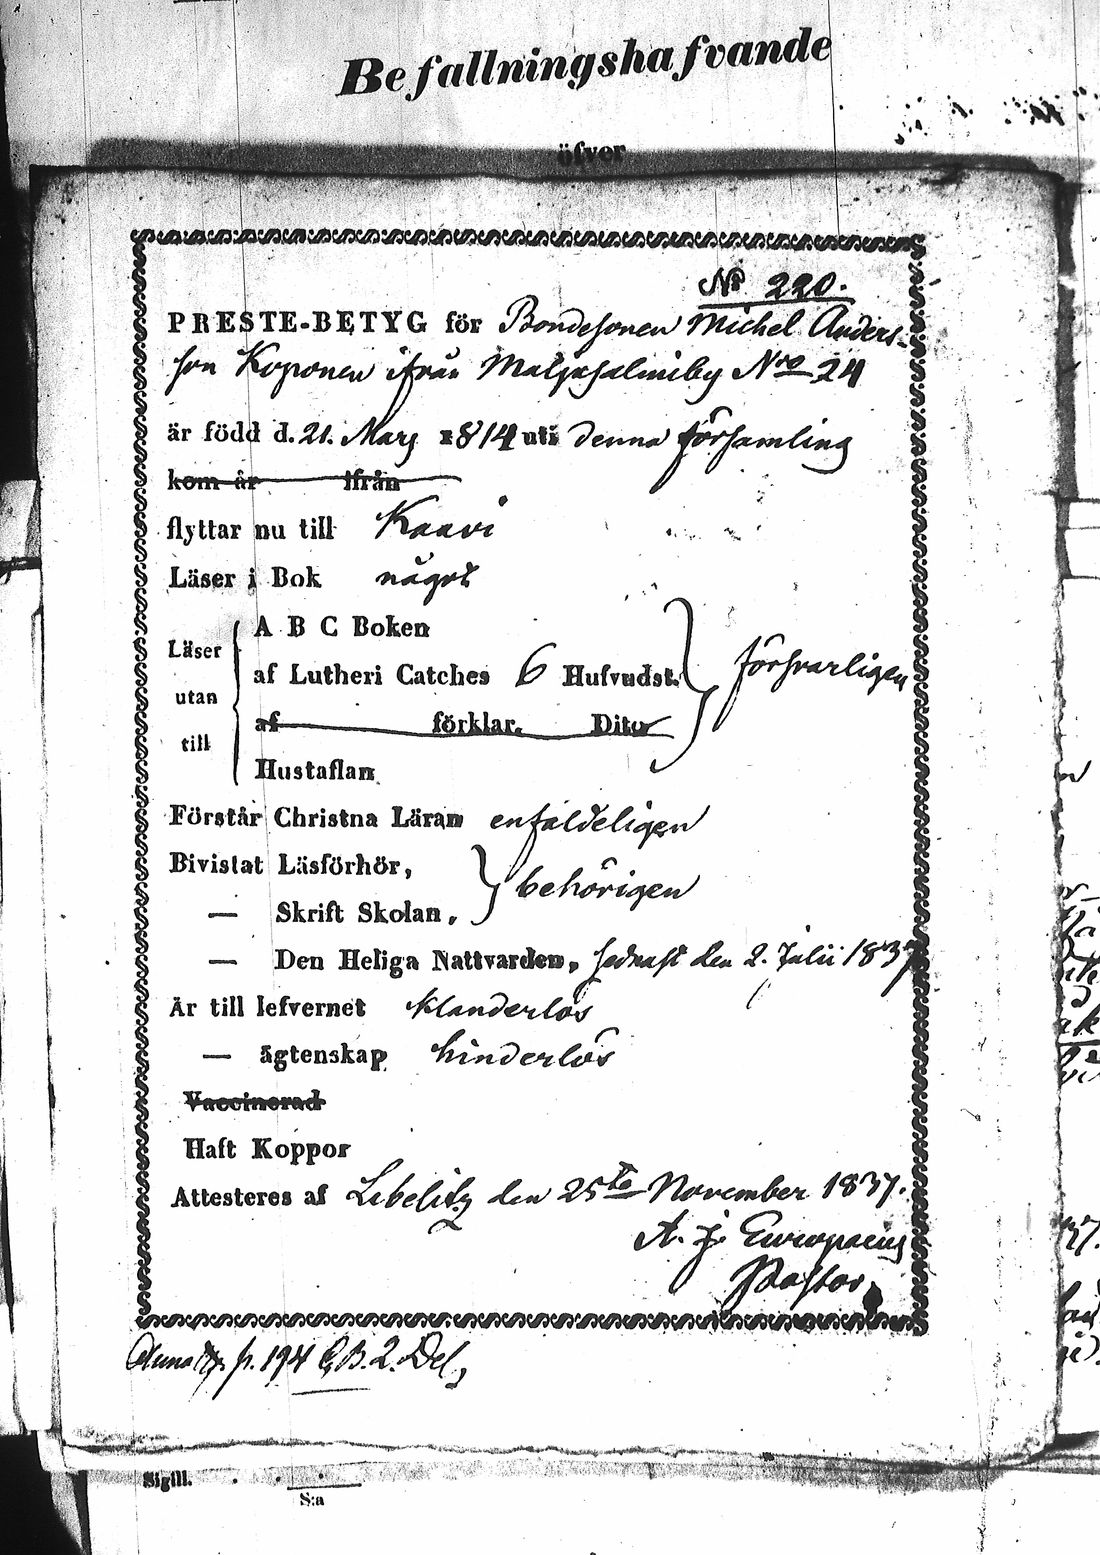 Befallningshafvande
öfver
No 220.
PRESTE-BETYG för Bondesonen Michel Anders-
son Koponen ifrån Maljasalmiby Nro 24
är född d. 21. Mars 1814 uti denna församling
kom år ifrån
flyttar nu till Kaavi
Läser i Bok något
A B C Boken
Läser
af Lutheri Catches 6 Hufvudst. försvarligen
utan
af förklar. Dito
till
Hustaflan
Förstår Christna Läran enfaldeligen
Bivistat Läsförhör,
behörigen
— Skrift Skolan,
— Den Heliga Nattvarden, sednast den 2. Julii 1837
Är till lefvernet klanderlös
— ägtenskap hinderlös
Vaccinerad
Haft Koppor
Attesteres af Libelitz den 25te November 1837.
A. J. Europaeus
Pastor
p. 194 C.B. 2. Del,
Sigill.
S:a